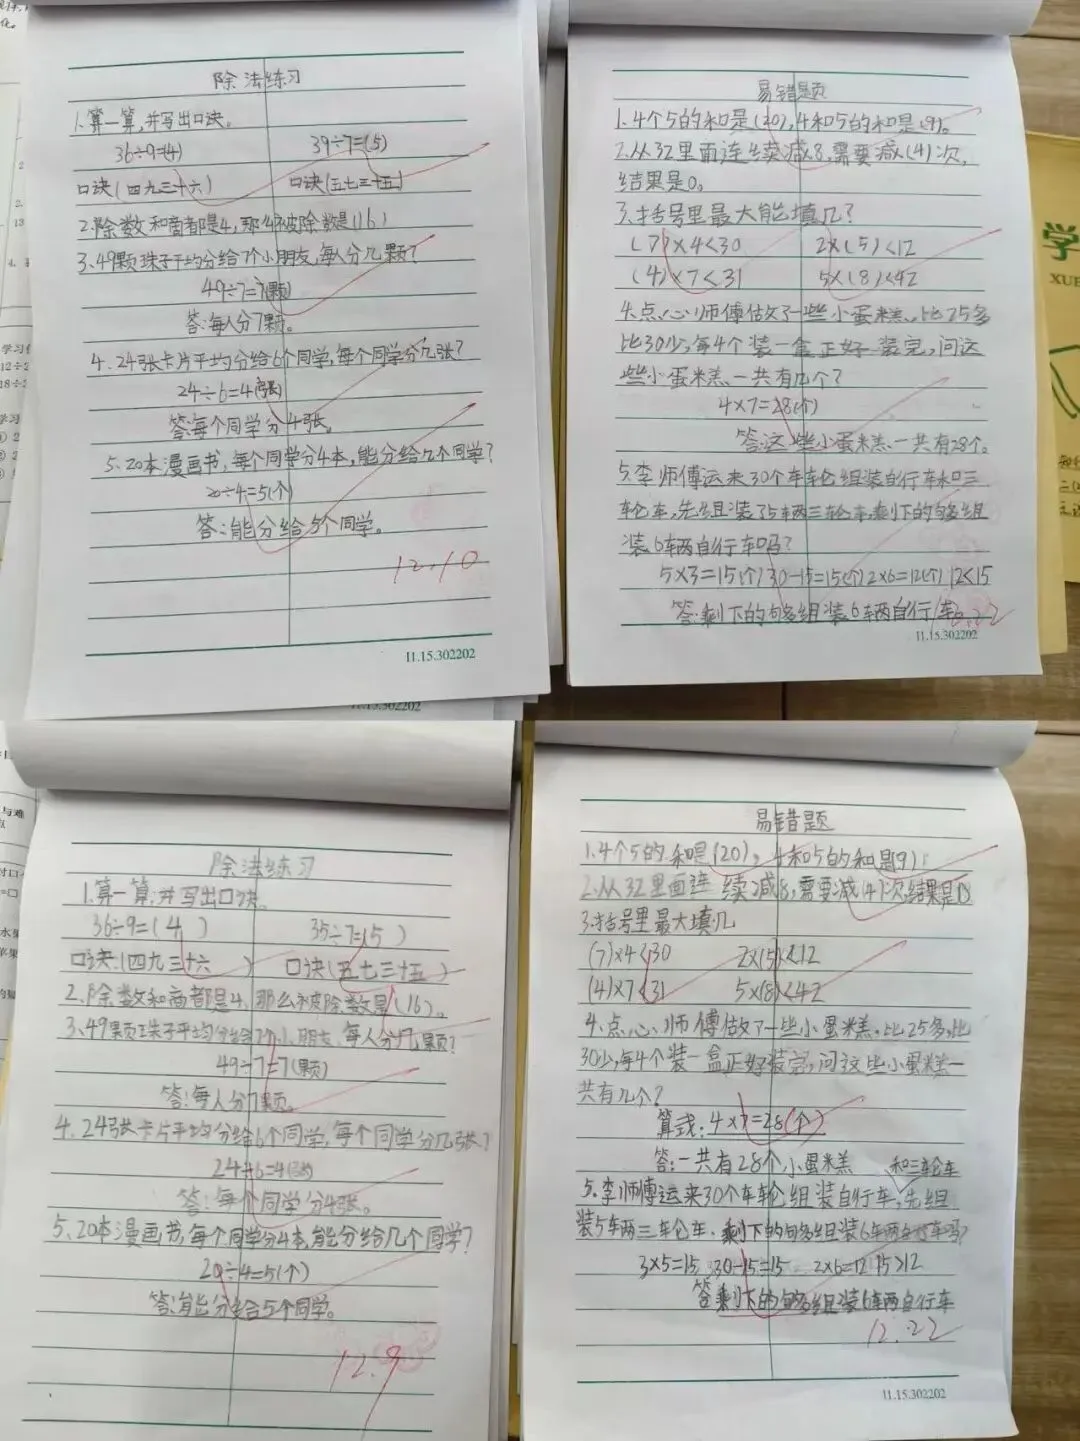 除法练习
1.算一算,并写出口诀。
36÷9=(4) 39÷7=(5)
口诀(四九三十六) 口诀(五七三十五)
2.除数和商都是4,那么被除数是(16)
3、49颗珠子平均分给7个小朋友,每人分几颗?
49÷7=7(颗)
答:每人分7颗。
4.24张卡片平均分给6个同学,每个同学分几张?
24÷6=4(张)
答:每个同学分4张。
5、20本漫画书,每个同学分4本,能分给几个同学?
20÷4=5(个)
答:能分给5个同学。
12.10
11.15.302202
11.15.302202
易错题
1.4个5的和是(20),4和5的和是(9)。
2.从32里面连续减8,需要减(4)次,
结果是0。
3.括号里最大能填几?
(7)×4<30 2×(5)<12
(4)×7<31 5×(8)<42
4.点心师傅做了一些小蛋糕,比25多
比30少,每4个装一盒正好装完,问这
些小蛋糕一共有几个?
4×7=28(个)
答:这些小蛋糕一共有28个。
5.李师傅运来30个车轮组装自行车和三
轮车,先组装了5车两三轮车,剩下的够组
装6车两自行车吗?
5×3=15(个) 30-15=15(个) 2×6=12(个) 12<15
答:剩下的够组装6车两自行车。
12.22
11.15.302202
学
XUE
除法练习
1.算一算,并写出口诀。
36÷9=(4) 35÷7=(5)
口诀:(四九三十六) 口诀(五七三十五)
2.除数和商都是4,那么被除数是(16)。
3、49颗珠子平均分给7个小朋友,每人分几颗?
49÷7=7(颗)
答:每人分7颗。
4.24张卡片平均分给6个同学,每个同学分几张?
24÷6=4(张)
答:每个同学分4张。
5、20本漫画书,每个同学分4本,能分给几个同学?
20÷4=5(个)
答:能分给5个同学。
12.9
易错题
1.4个5的和是(20)。4和5的和是(9)
2.从32里面连续减8,需要减(4)次结果是0
3.括号里最大填几
(7)×4<30 2×(5)<12
(4)×7<31 5×(8)<42
4.点心师傅做了一些小蛋糕,比25多,比
30少,每4个装一盒正好装完,问这些小蛋糕一
共有几个?
算式:4×7=28(个)
答:一共有28个小蛋糕
和三轮车
5.李师傅运来30个车轮组装自行车,先组
装5车两三车仑车.剩下的够组装6车两自行车吗?
3×5=15 30-15=15 2×6=12 15>12
答剩下的够组装6车两自行车
12.22
11.15.302202